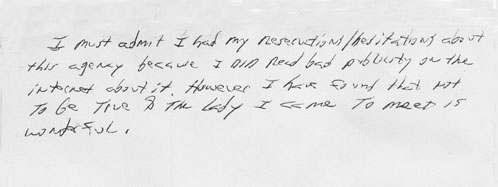 I must admit I had my reservations/hesitations about
this agency because I DID read bad publicity on the
internet about it. However I have found that not
To be True & The lady I came To meet is
wonderful.